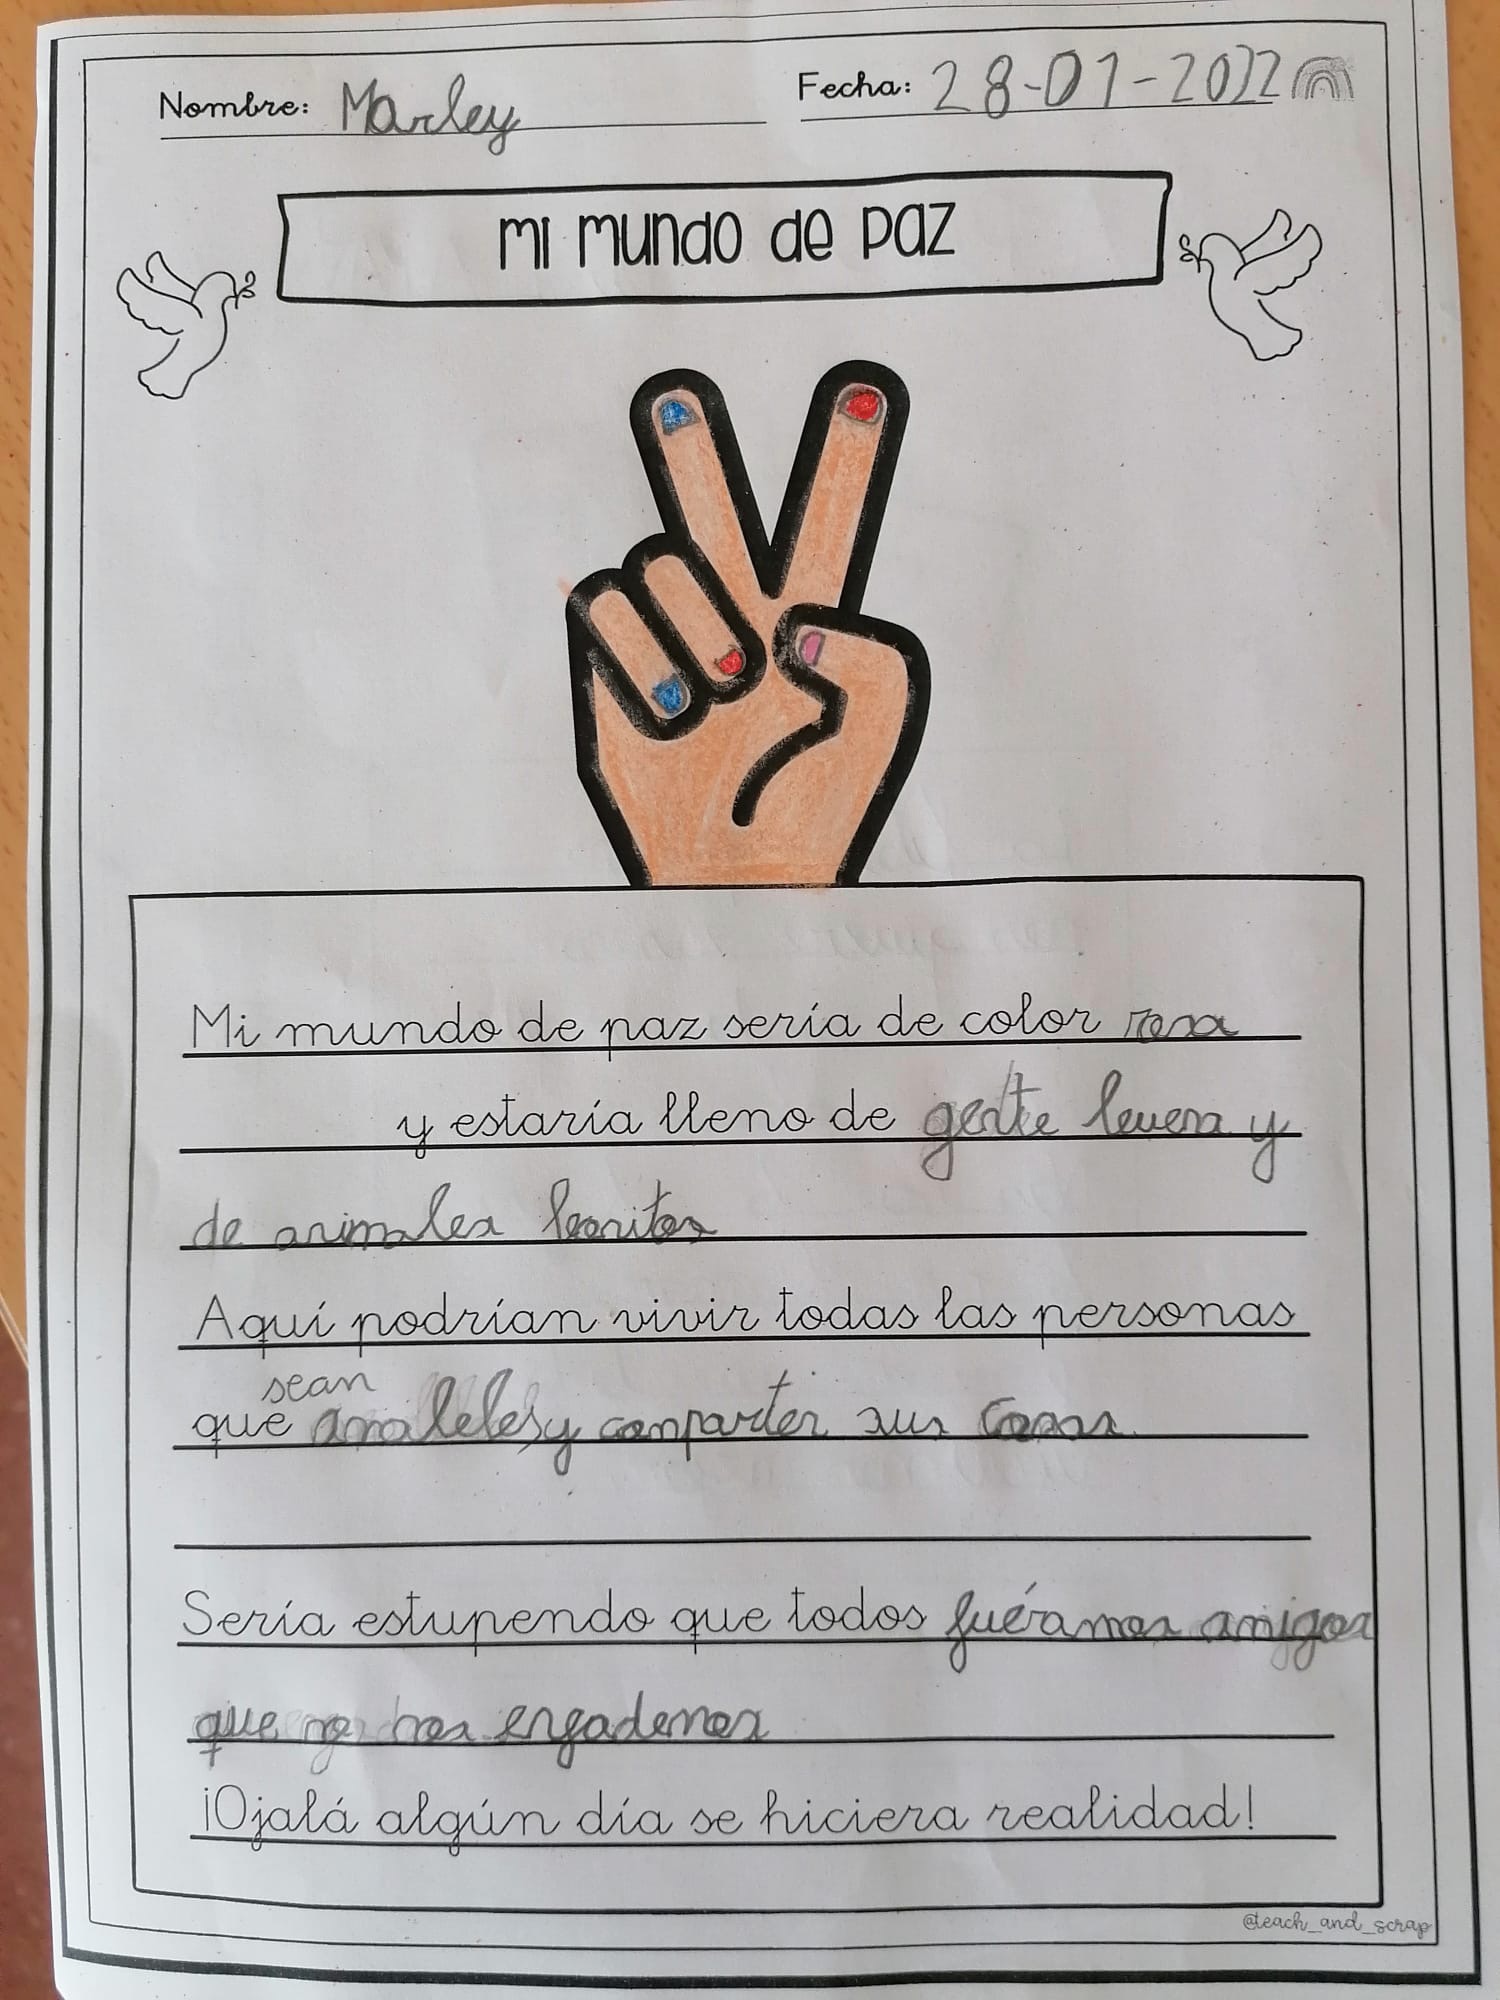 Nombre: Marley
Fecha: 28-01-2022
mi mundo de paz
Mi mundo de paz sería de color rosa
y estaría lleno de gente buena y
de animales bonitos
Aquí podrían vivir todas las personas
sean
que amables y comparter sus cosas.
Sería estupendo que todos fuéramos amigos
que no nos engademos
¡Ojalá algún día se hiciera realidad!
@teach_and_scrap